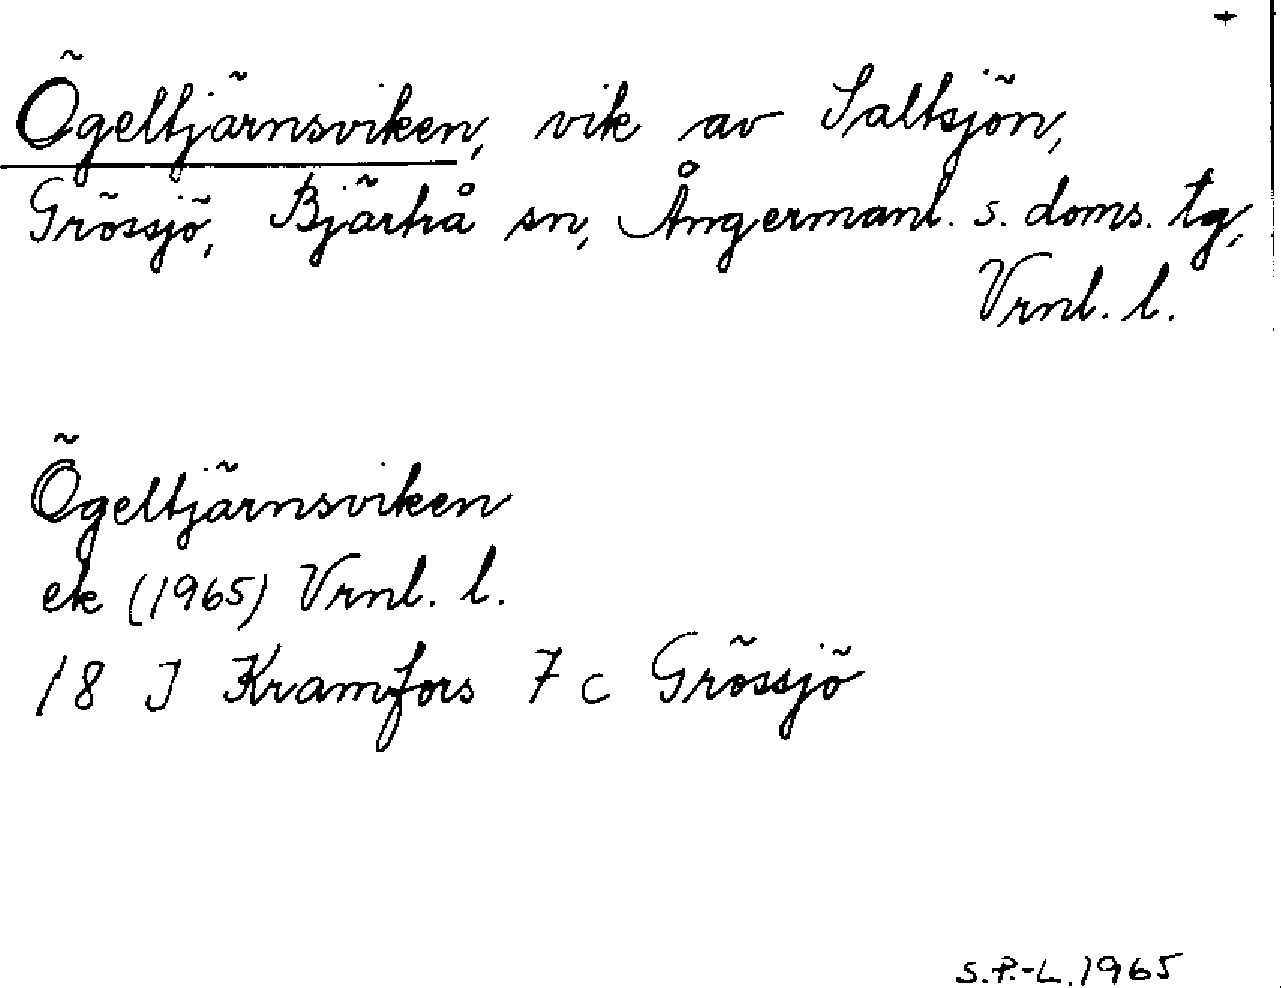 Ögeltjärnsviken, vik av Saltsjön,
Grössjö, Bjärtrå sn, Ångermanl. s. doms. tg,
Vrnl. l.
Ögeltjärnsviken
ek (1965) Vrnl. l.
18 J Kramfors 7 c Grössjö
S.P.-L. 1965